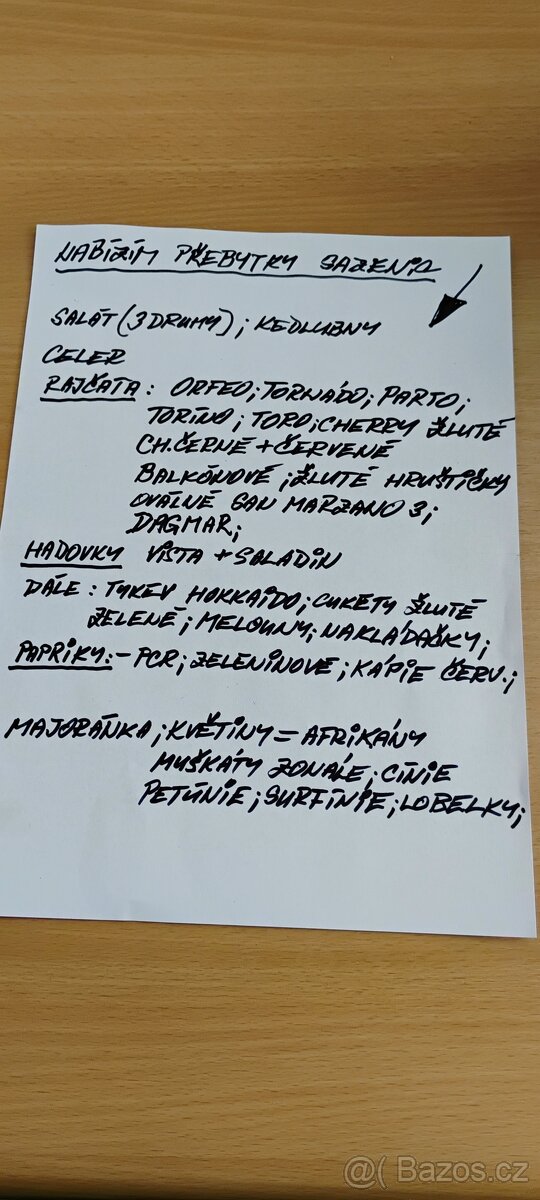 NABÍZÍM PŘEBYTKY SAZENIC
SALÁT (3 DRUHY); KEDLUBNY
CELER
RAJČATA: ORFEO; TORNÁDO; PARTO;
TORINO; TORO; CHERRY ŽLUTÉ
CH. ČERNÉ + ČERVENÉ
BALKÓNOVÉ; ŽLUTÉ HRUŠTIČKY
OVÁLNÉ SAN MARZANO 3;
DAGMAR;
HADOVKY VISTA + SALADIN
DÁLE: TYKEV HOKKAIDO; CUKETY ŽLUTÉ
ZELENÉ; MELOUNY; NAKLÁDAČKY;
PAPRIKY: - PCR; ZELENINOVÉ; KÁPIE ČERV.;
MAJORÁNKA; KVĚTINY = AFRIKÁNY
MUŠKÁTY ZONÁLE; CÍNIE
PETÚNIE; SURFÍNIE; LOBELKY;
@( Bazos.cz